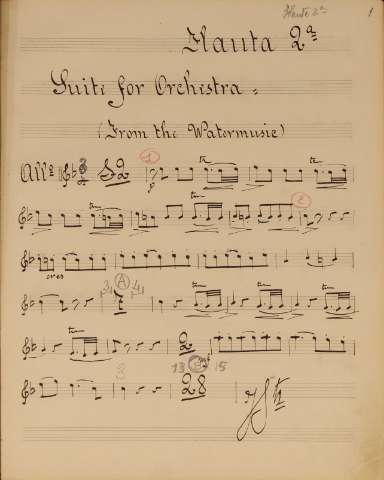 Flauta 2ª
1
Flauta 2ª
Suite for Orchestra
(From the Watermusic)
Allº
52
1
tr
tr
tr
tr
2
cres
tr
34
A
41
tr
tr
tr
tr
2
13
B
15
3
28